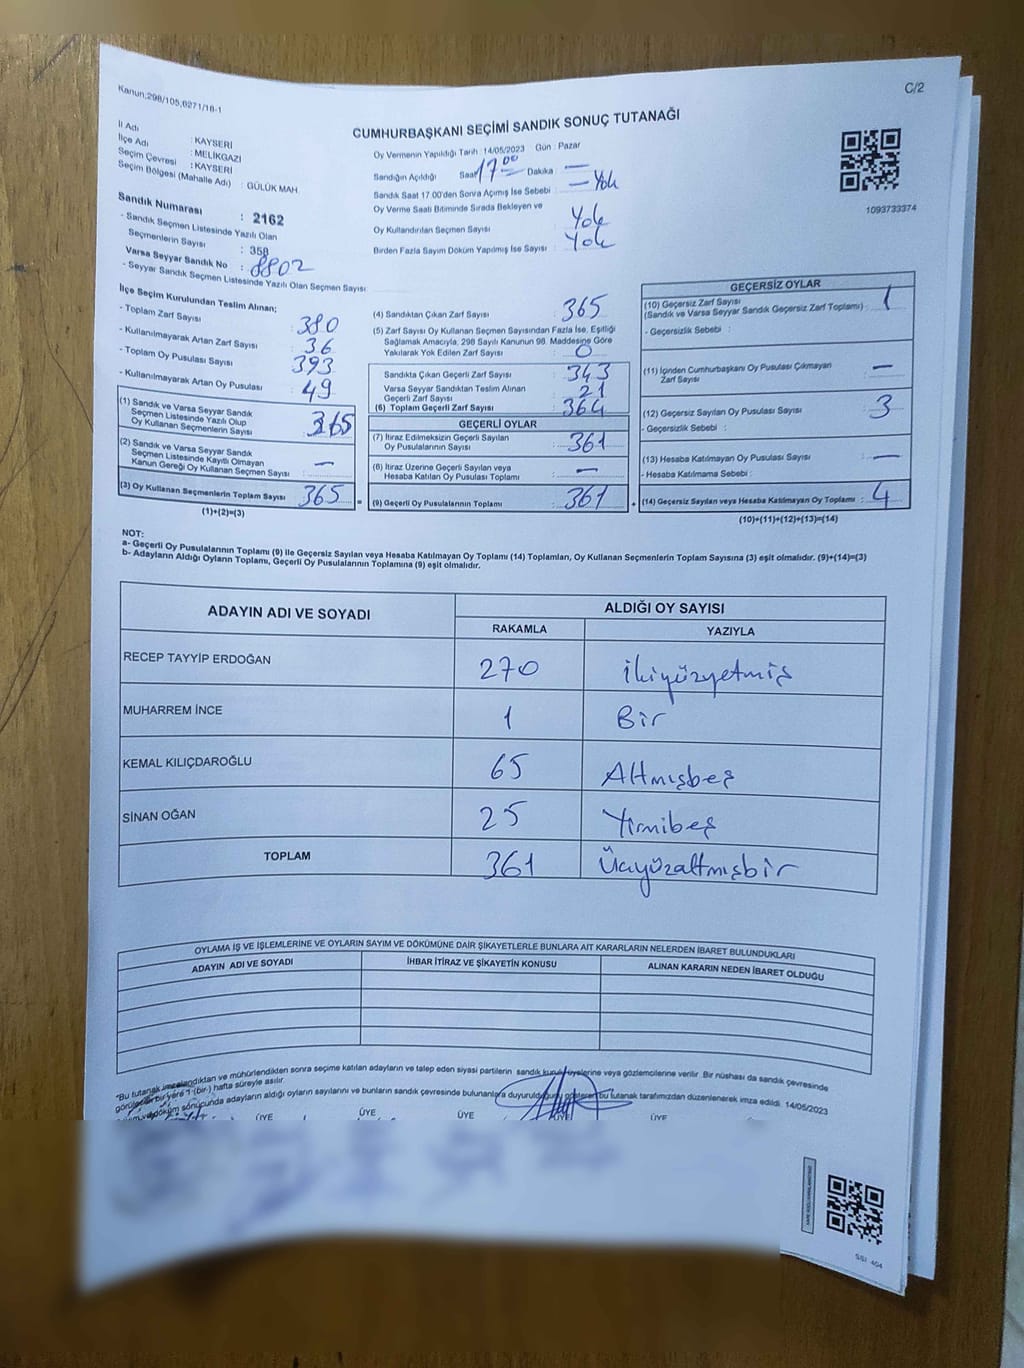 C/2
Kanun;298/105,6271/18-1
CUMHURBAŞKANI SEÇİMİ SANDIK SONUÇ TUTANAĞI
İl Adı : KAYSERİ
İlçe Adı : MELİKGAZİ
Seçim Çevresi : KAYSERİ
Seçim Bölgesi (Mahalle Adı) : GÜLÜK MAH.
Sandık Numarası : 2162
- Sandık Seçmen Listesinde Yazılı Olan
Seçmenlerin Sayısı : 358
Varsa Seyyar Sandık No : 8802
- Seyyar Sandık Seçmen Listesinde Yazılı Olan Seçmen Sayısı:
Oy Vermenin Yapıldığı Tarih :14/05/2023 Gün : Pazar
Sandığın Açıldığı Saat 17 00 Dakika : —
Sandık Saat 17.00'den Sonra Açılmış İse Sebebi : — Yok
Oy Verme Saati Bitiminde Sırada Bekleyen ve
Oy Kullandırılan Seçmen Sayısı : Yok
Birden Fazla Sayım Döküm Yapılmış İse Sayısı : Yok
1093733374
İlçe Seçim Kurulundan Teslim Alınan;
- Toplam Zarf Sayısı : 380
- Kullanılmayarak Artan Zarf Sayısı : 36
- Toplam Oy Pusulası Sayısı : 393
- Kullanılmayarak Artan Oy Pusulası : 49
(1) Sandık ve Varsa Seyyar Sandık
Seçmen Listesinde Yazılı Olup
Oy Kullanan Seçmenlerin Sayısı : 365
(2) Sandık ve Varsa Seyyar Sandık
Seçmen Listesinde Kayıtlı Olmayan
Kanun Gereği Oy Kullanan Seçmen Sayısı : —
(3) Oy Kullanan Seçmenlerin Toplam Sayısı : 365
(1)+(2)=(3)
(4) Sandıktan Çıkan Zarf Sayısı : 365
(5) Zarf Sayısı Oy Kullanan Seçmen Sayısından Fazla İse, Eşitliği
Sağlamak Amacıyla, 298 Sayılı Kanunun 98. Maddesine Göre
Yakılarak Yok Edilen Zarf Sayısı : 0
Sandıkta Çıkan Geçerli Zarf Sayısı : 343
Varsa Seyyar Sandıktan Teslim Alınan
Geçerli Zarf Sayısı : 21
(6) Toplam Geçerli Zarf Sayısı : 364
GEÇERLİ OYLAR
(7) İtiraz Edilmeksizin Geçerli Sayılan
Oy Pusulalarının Sayısı : 361
(8) İtiraz Üzerine Geçerli Sayılan veya
Hesaba Katılan Oy Pusulası Toplamı : —
(9) Geçerli Oy Pusulalarının Toplamı : 361
GEÇERSİZ OYLAR
(10) Geçersiz Zarf Sayısı
(Sandık ve Varsa Seyyar Sandık Geçersiz Zarf Toplamı) : 1
- Geçersizlik Sebebi :
(11) İçinden Cumhurbaşkanı Oy Pusulası Çıkmayan
Zarf Sayısı : —
(12) Geçersiz Sayılan Oy Pusulası Sayısı : 3
- Geçersizlik Sebebi :
(13) Hesaba Katılmayan Oy Pusulası Sayısı : —
- Hesaba Katılmama Sebebi :
(14) Geçersiz Sayılan veya Hesaba Katılmayan Oy Toplamı : 4
(10)+(11)+(12)+(13)=(14)
NOT:
a- Geçerli Oy Pusulalarının Toplamı (9) ile Geçersiz Sayılan veya Hesaba Katılmayan Oy Toplamı (14) Toplamları, Oy Kullanan Seçmenlerin Toplam Sayısına (3) eşit olmalıdır. (9)+(14)=(3)
b- Adayların Aldığı Oyların Toplamı, Geçerli Oy Pusulalarının Toplamına (9) eşit olmalıdır.
ADAYIN ADI VE SOYADI ALDIĞI OY SAYISI
RAKAMLA YAZIYLA
RECEP TAYYİP ERDOĞAN 270 İkiyüzyetmiş
MUHARREM İNCE 1 Bir
KEMAL KILIÇDAROĞLU 65 Altmışbeş
SİNAN OĞAN 25 Yirmibeş
TOPLAM 361 Üçyüzaltmışbir
OYLAMA İŞ VE İŞLEMLERİNE VE OYLARIN SAYIM VE DÖKÜMÜNE DAİR ŞİKAYETLERLE BUNLARA AİT KARARLARIN NELERDEN İBARET BULUNDUKLARI
ADAYIN ADI VE SOYADI İHBAR İTİRAZ VE ŞİKAYETİN KONUSU ALINAN KARARIN NEDEN İBARET OLDUĞU
"Bu tutanak imzalandıktan ve mühürlendikten sonra seçime katılan adayların ve talep eden siyasi partilerin sandık kurulu üyelerine veya gözlemcilerine verilir. Bir nüshası da sandık çevresinde
görülebilir bir yere 1 (bir) hafta süreyle asılır.
döküm sonucunda adayların aldığı oyların sayılarını ve bunların sandık çevresinde bulunanlara duyurulduğunu gösteren bu tutanak tarafımızdan düzenlenerek imza edildi. 14/05/2023
ÜYE ÜYE ÜYE ÜYE ÜYE